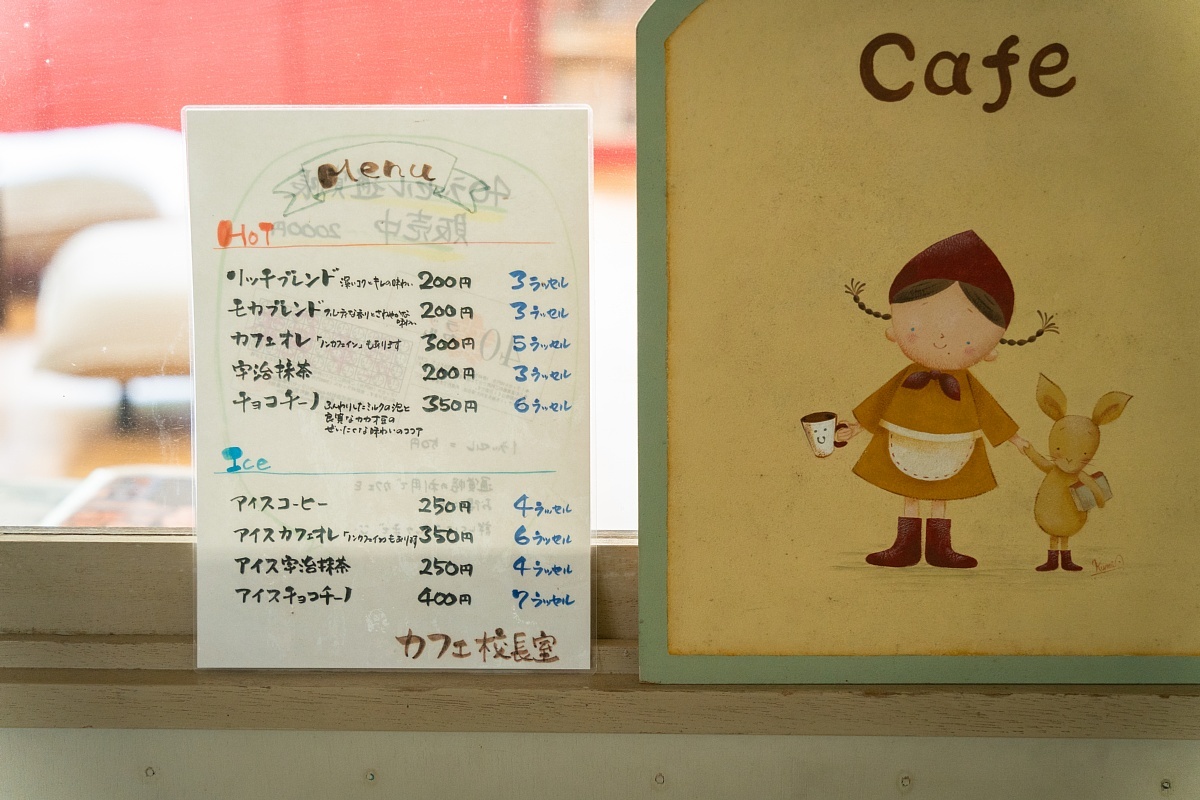 Menu
HOT
リッチブレンド 深いコクとキレの味わい 200円 3ラッセル
モカブレンド フルーティな香りとさわやかな味わい 200円 3ラッセル
カフェオレ 「ノンカフェイン」もあります 300円 5ラッセル
宇治抹茶 200円 3ラッセル
チョコチーノ ふんわりしたミルクの泡と 350円 6ラッセル
良質なカカオ豆の
ぜいたくな味わいのココア
Ice
アイスコーヒー 250円 4ラッセル
アイスカフェオレ 「ノンカフェイン」もあります 350円 6ラッセル
アイス宇治抹茶 250円 4ラッセル
アイスチョコチーノ 400円 7ラッセル
カフェ校長室
Cafe